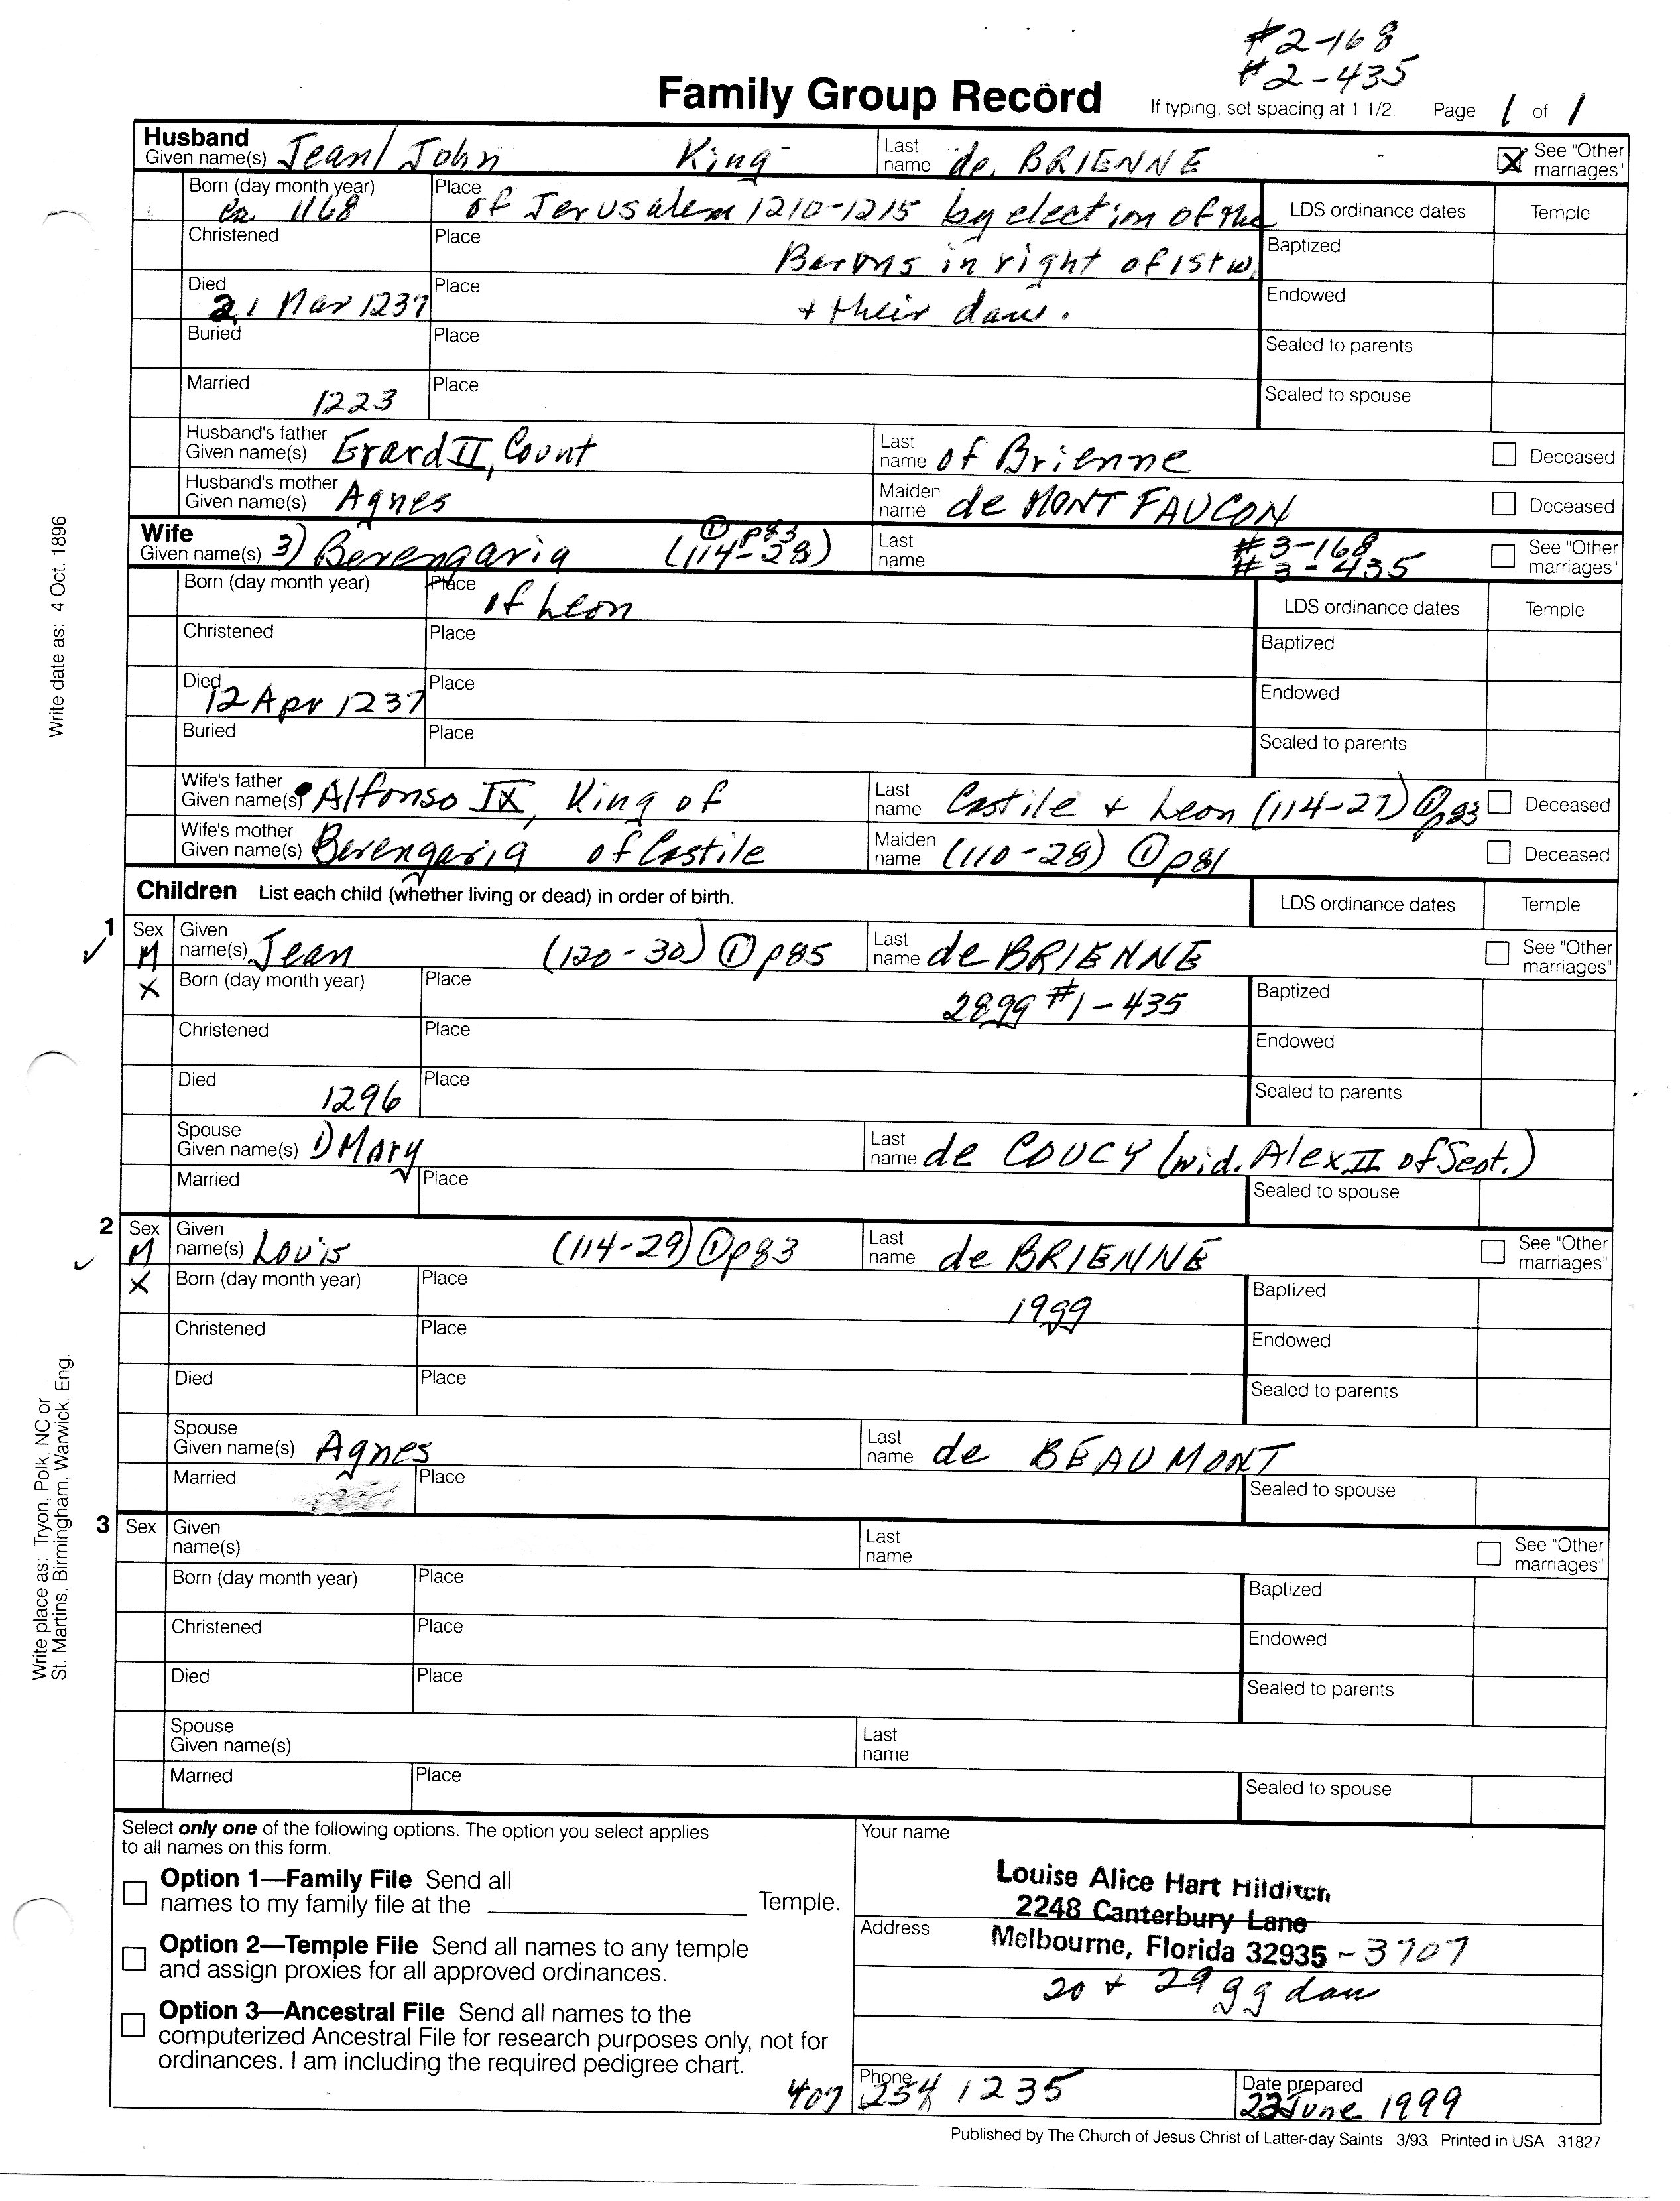 #2-168
#2-435
Family Group Record
If typing, set spacing at 1 1/2. Page 1 of 1
Husband
Given name(s) Jean/John King Last name de BRIENNE X See "Other marriages"
Born (day month year) ca 1168 Place of Jerusalem 1210-1215 by election of the LDS ordinance dates Temple
Christened Place Barons in right of 1st w. Baptized
Died 21 Mar 1237 Place + their dau. Endowed
Buried Place Sealed to parents
Married 1223 Place Sealed to spouse
Husband's father Given name(s) Erard II, Count Last name of Brienne Deceased
Husband's mother Given name(s) Agnes Maiden name de MONT FAUCON Deceased
Wife
Given name(s) 3) Berengaria (114-28) ① p83 Last name #3-168 #3-435 See "Other marriages"
Born (day month year) Place of Leon LDS ordinance dates Temple
Christened Place Baptized
Died 12 Apr 1237 Place Endowed
Buried Place Sealed to parents
Wife's father Given name(s) Alfonso IX, King of Last name Castile + Leon (114-27) ① p83 Deceased
Wife's mother Given name(s) Berengaria of Castile Maiden name (110-28) ① p81 Deceased
Children List each child (whether living or dead) in order of birth. LDS ordinance dates Temple
1 Sex M Given name(s) Jean (120-30) ① p85 Last name de BRIENNE See "Other marriages"
X Born (day month year) Place 28gg #1-435 Baptized
Christened Place Endowed
Died 1296 Place Sealed to parents
Spouse Given name(s) 1) Mary Last name de COUCY (wid. Alex II of Scot.)
Married Place Sealed to spouse
2 Sex M Given name(s) Louis (114-29) ① p83 Last name de BRIENNE See "Other marriages"
X Born (day month year) Place 19gg Baptized
Christened Place Endowed
Died Place Sealed to parents
Spouse Given name(s) Agnes Last name de BEAUMONT
Married Place Sealed to spouse
3 Sex Given name(s) Last name See "Other marriages"
Born (day month year) Place Baptized
Christened Place Endowed
Died Place Sealed to parents
Spouse Given name(s) Last name
Married Place Sealed to spouse
Select only one of the following options. The option you select applies
to all names on this form.
Option 1—Family File Send all
names to my family file at the Temple.
Option 2—Temple File Send all names to any temple
and assign proxies for all approved ordinances.
Option 3—Ancestral File Send all names to the
computerized Ancestral File for research purposes only, not for
ordinances. I am including the required pedigree chart.
Your name
Louise Alice Hart Hilditch
2248 Canterbury Lane
Address
Melbourne, Florida 32935-3707
20 + 29 gg dau
Phone 407 254 1235
Date prepared 22 June 1999
Published by The Church of Jesus Christ of Latter-day Saints 3/93 Printed in USA 31827
Write date as: 4 Oct. 1896
Write place as: Tryon, Polk, NC or
St. Martins, Birmingham, Warwick, Eng.